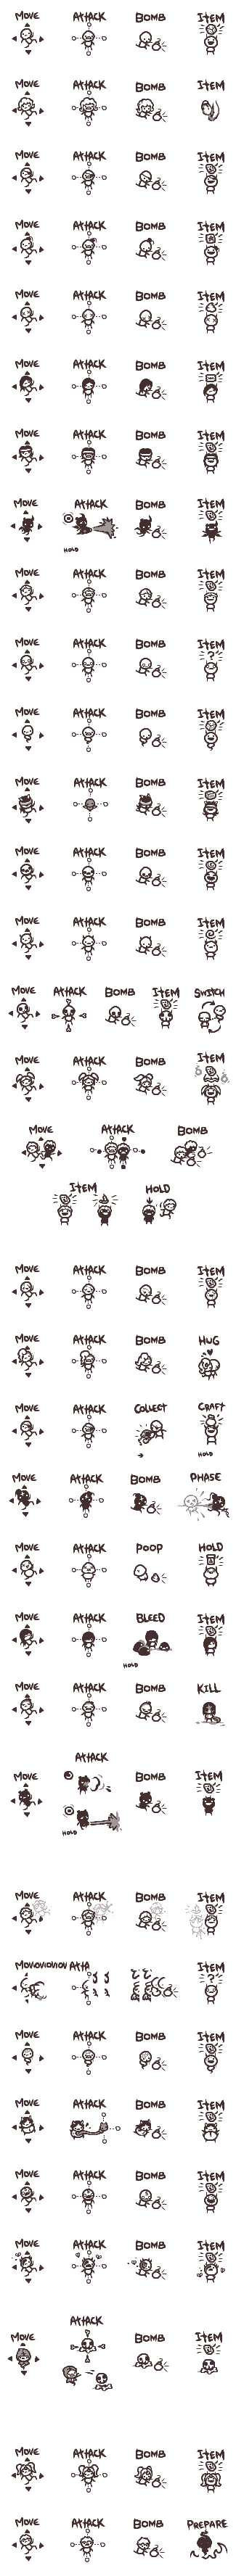 MOVE ATTACK BOMB ITEM
MOVE ATTACK BOMB ITEM
MOVE ATTACK BOMB ITEM
MOVE ATTACK BOMB ITEM
MOVE ATTACK BOMB ITEM
MOVE ATTACK BOMB ITEM
MOVE ATTACK BOMB ITEM
MOVE ATTACK BOMB ITEM
HOLD
MOVE ATTACK BOMB ITEM
MOVE ATTACK BOMB ITEM
?
MOVE ATTACK BOMB ITEM
MOVE ATTACK BOMB ITEM
MOVE ATTACK BOMB ITEM
MOVE ATTACK BOMB ITEM
MOVE ATTACK BOMB ITEM SWITCH
MOVE ATTACK BOMB ITEM
MOVE ATTACK BOMB
ITEM HOLD
MOVE ATTACK BOMB ITEM
MOVE ATTACK BOMB HUG
MOVE ATTACK COLLECT CRAFT
HOLD
MOVE ATTACK BOMB PHASE
MOVE ATTACK POOP HOLD
MOVE ATTACK BLEED ITEM
HOLD
MOVE ATTACK BOMB KILL
ATTACK
MOVE BOMB ITEM
HOLD
MOVE ATTACK BOMB ITEM
MOVOVOVOVOV ATTA ITEM
?
MOVE ATTACK BOMB ITEM
MOVE ATTACK BOMB ITEM
MOVE ATTACK BOMB ITEM
MOVE ATTACK BOMB ITEM
ATTACK
MOVE BOMB ITEM
MOVE ATTACK BOMB ITEM
MOVE ATTACK BOMB PREPARE